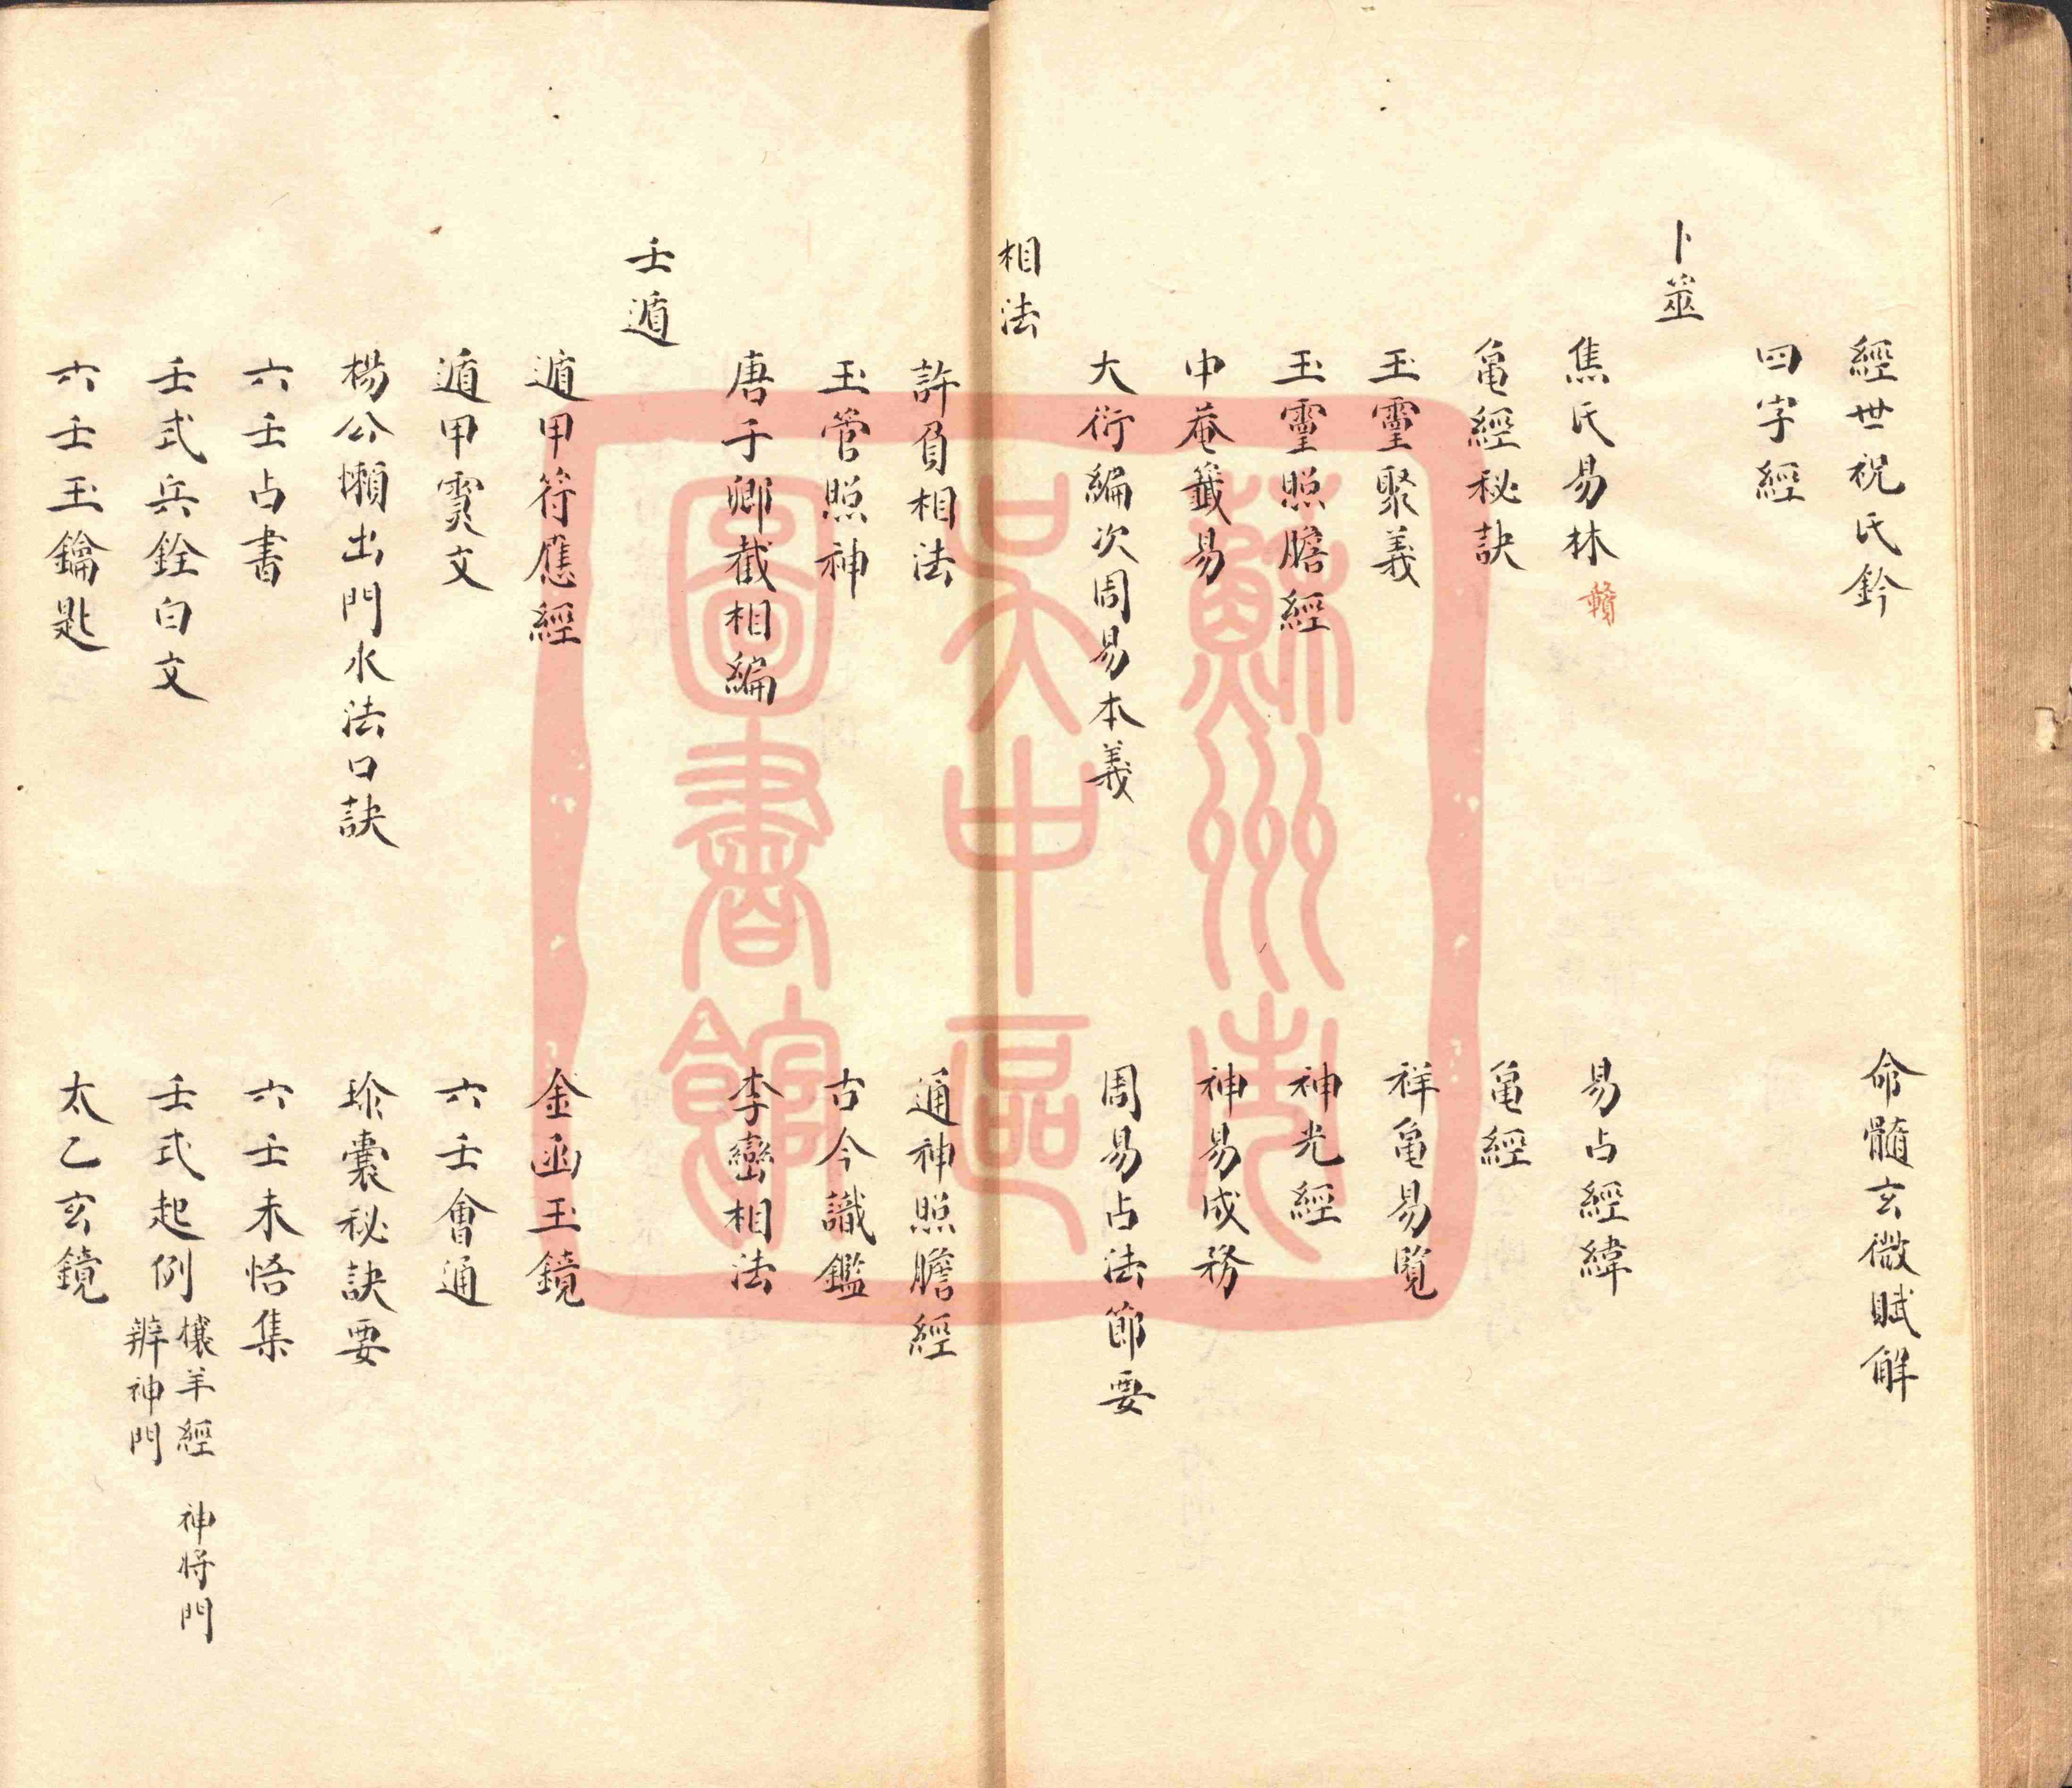 經世祝氏鈐　命髓玄微賦解
四字經
卜筮
焦氏易林　易占經緯
龜經秘訣　龜經
玉靈聚義　祥龜易覽
玉靈照膽經　神光經
中菴籤易　神易成務
大衍編次周易本義　周易占法節要
相法
許負相法　通神照膽經
玉管照神　古今識鑑
唐子卿截相編　李巒相法
壬遁
遁甲符應經　金函玉鏡
遁甲　文　六壬會通
楊公懶出門水法口訣　珍囊秘訣要
六壬占書　六壬未悟集
壬式兵銓白文　壬式起例　欀羊經　神將門
辨神門
六壬玉鑰匙　太乙玄鏡
蘇州市
吳中區
圖書館